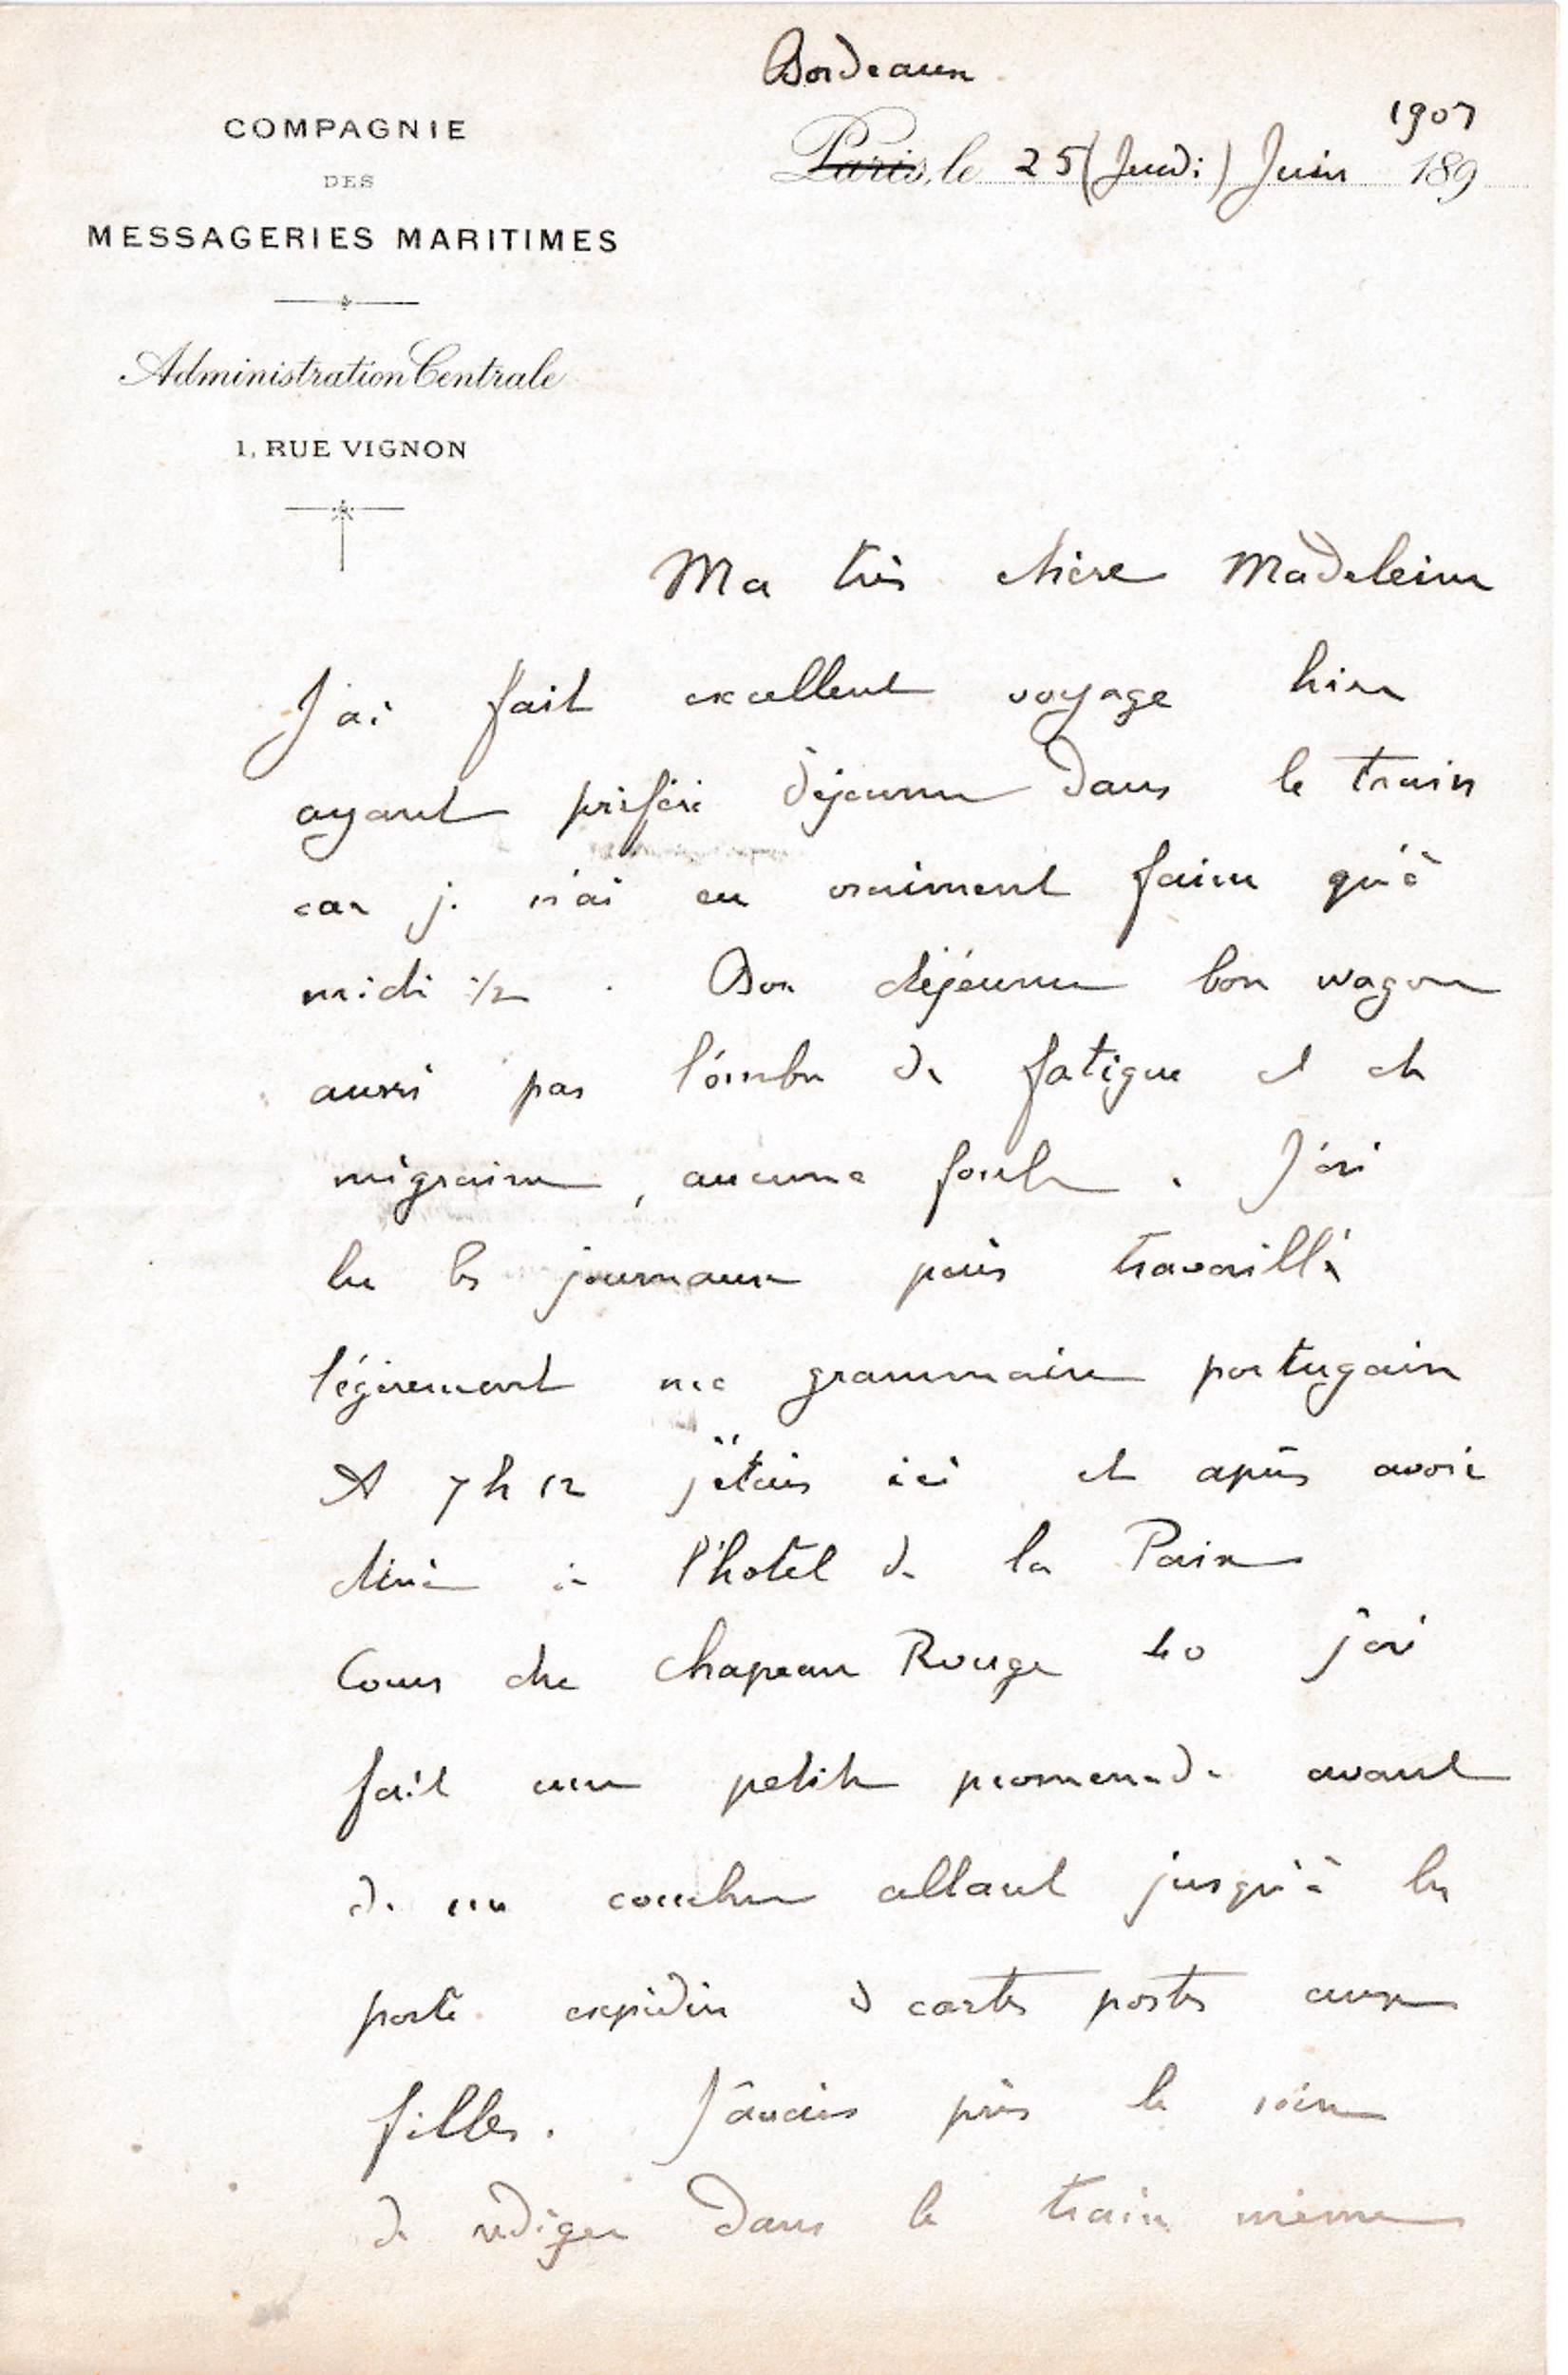 Bordeaux
COMPAGNIE
DES
MESSAGERIES MARITIMES
Administration Centrale
1, RUE VIGNON
1907
Paris, le 25 (Jeudi) Juin 189
Ma très chère Madeleine
J'ai fait excellent voyage hier
ayant préféré déjeuner dans le train
car je n'ai eu vraiment faim qu'à
midi 1/2. Bon déjeuner bon wagon
aussi pas l'ombre de fatigue et de
migraine, aucune foule. J'ai
lu les journaux puis travaillé
légèrement ma grammaire portugaise
A 7 h 12 j'étais ici et après avoir
diné à l'hotel de la Paix
Cours du Chapeau Rouge 40 j'ai
fait une petite promenade avant
de me coucher allant jusqu'à la
poste expédier 2 cartes postes aux
filles. J'avais pris le soin
de rédiger dans le train même